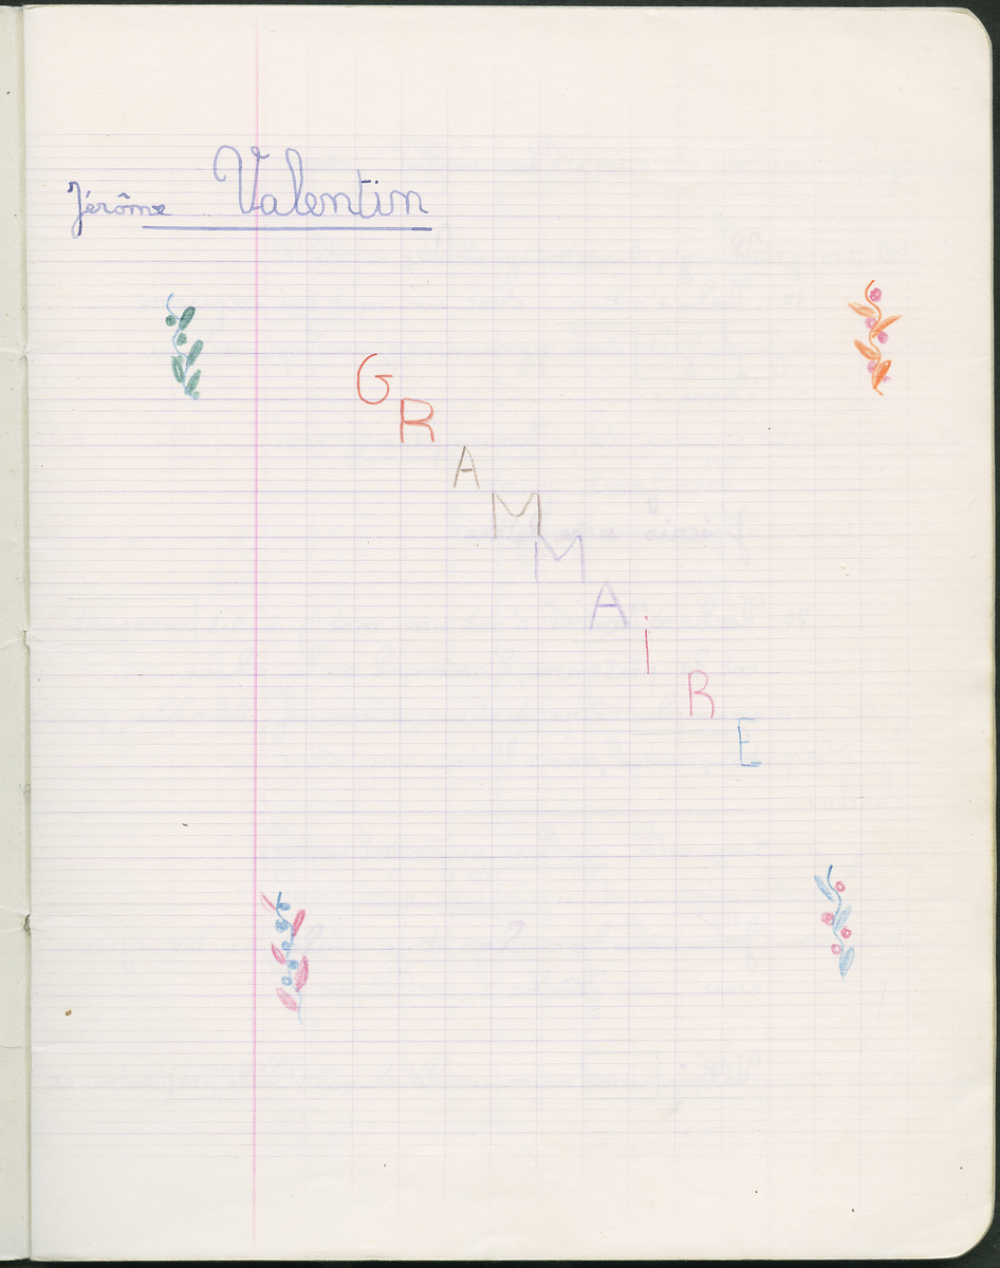 Jérôme Valentin
GRAMMAiRE